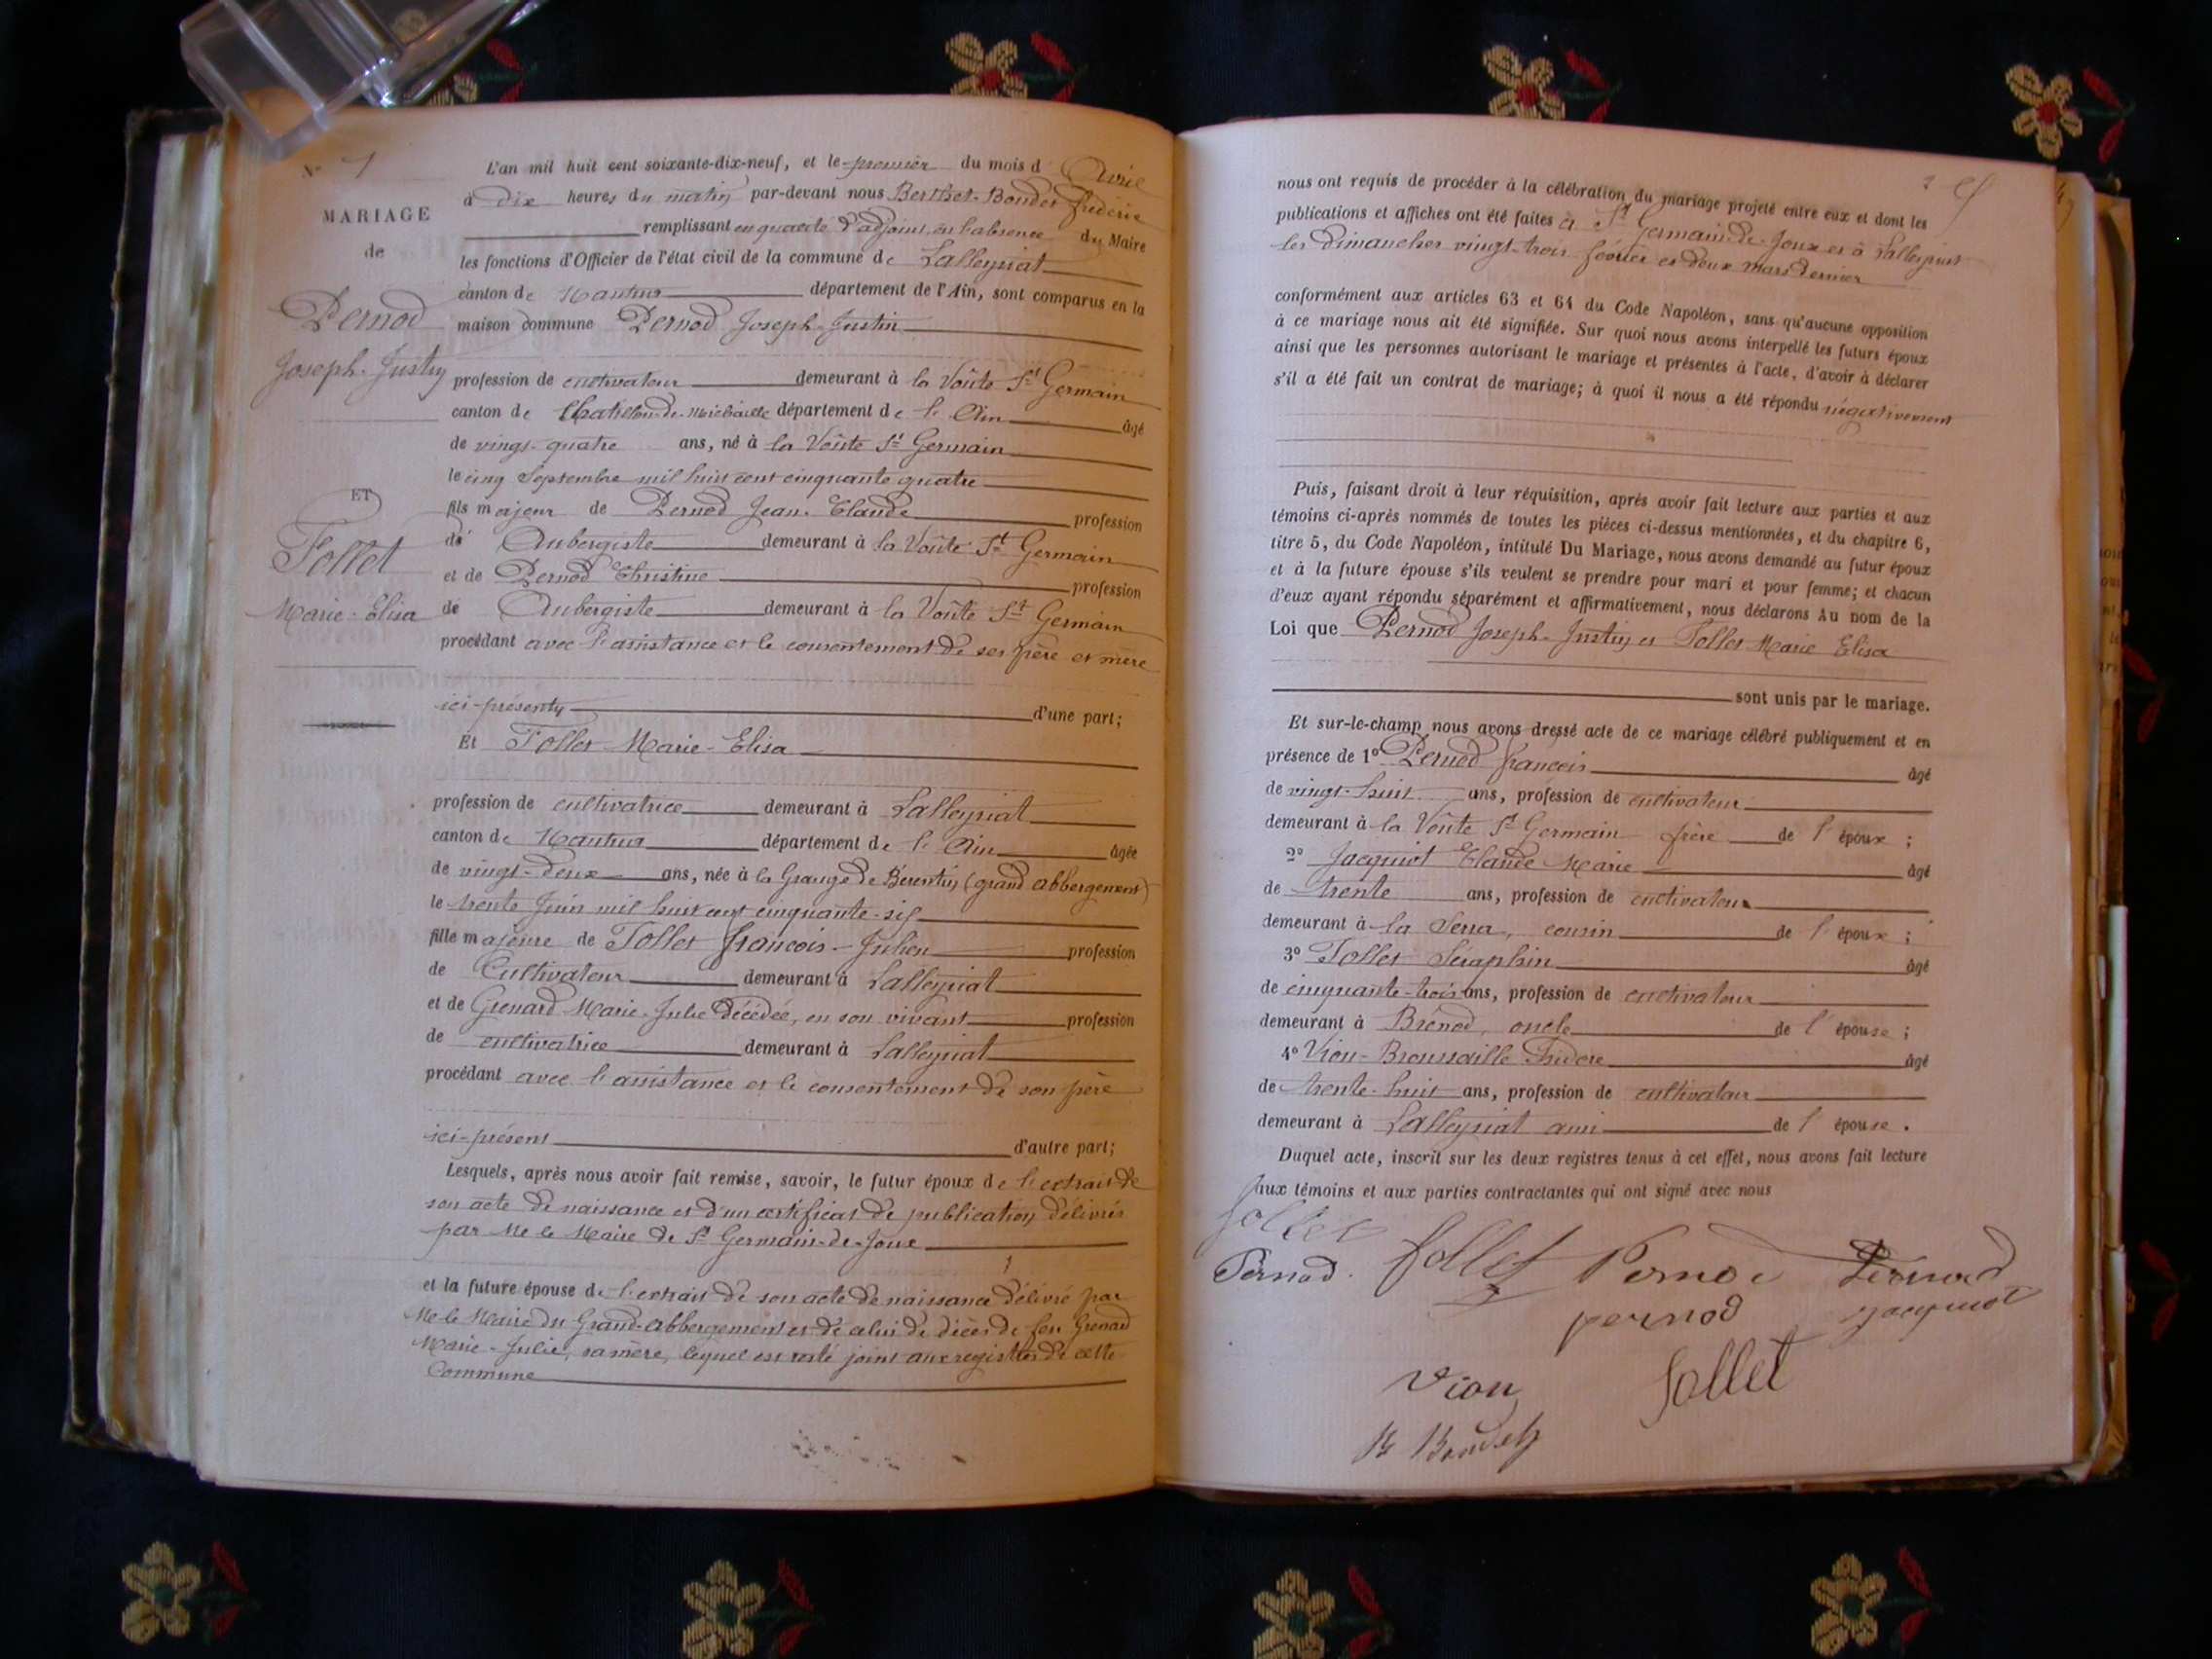 N° 1
MARIAGE
de
Pernod
Joseph-Justin
ET
Follet
Marie-Elisa
L'an mil huit cent soixante-dix-neuf, et le premier du mois d'Avril
à dix heures du matin par-devant nous Berthet-Bondet frédéric
remplissant en qualité d'adjoint, en l'absence du Maire
les fonctions d'Officier de l'état civil de la commune de Lalleyriat
canton de Nantua département de l'Ain, sont comparus en la
maison commune Pernod Joseph-Justin
profession de cultivateur demeurant à la Voûte St Germain
canton de Chatillon-de-Michaille département de l'Ain âgé
de vingt-quatre ans, né à la Voûte St Germain
le cinq Septembre mil huit cent cinquante quatre
fils majeur de Pernod Jean-Claude profession
de Aubergiste demeurant à la Voûte St Germain
et de Pernod Christine profession
de Aubergiste demeurant à la Voûte St Germain
procédant avec l'assistance et le consentement de ses père et mère
ici-présents d'une part;
Et Follet Marie-Elisa
profession de cultivatrice demeurant à Lalleyriat
canton de Nantua département de l'Ain âgée
de vingt-deux ans, née à la Grange de Berentin (grand abbergement)
le trente Juin mil huit cent cinquante-six
fille majeure de Follet françois-Julien profession
de Cultivateur demeurant à Lalleyriat
et de Grenard Marie-Julie décédée, en son vivant profession
de cultivatrice demeurant à Lalleyriat
procédant avec l'assistance et le consentement de son père
ici-présent d'autre part;
Lesquels, après nous avoir fait remise, savoir, le futur époux de l'extrait de
son acte de naissance et d'un certificat de publication délivrés
par Me le Maire de St Germain-de-Joux
et la future épouse de l'extrait de son acte de naissance délivré par
Me le Maire du Grand-abbergement et de celui de décès de feu Grenard
Marie-Julie, sa mère, lequel est resté joint aux registres de cette
Commune
nous ont requis de procéder à la célébration du mariage projeté entre eux et dont les
publications et affiches ont été faites à St Germain-de-Joux et à Lalleyriat
les dimanches vingt-trois février et deux mars dernier
conformément aux articles 63 et 64 du Code Napoléon, sans qu'aucune opposition
à ce mariage nous ait été signifiée. Sur quoi nous avons interpellé les futurs époux
ainsi que les personnes autorisant le mariage et présentes à l'acte, d'avoir à déclarer
s'il a été fait un contrat de mariage; à quoi il nous a été répondu négativement
Puis, faisant droit à leur réquisition, après avoir fait lecture aux parties et aux
témoins ci-après nommés de toutes les pièces ci-dessus mentionnées, et du chapitre 6,
titre 5, du Code Napoléon, intitulé Du Mariage, nous avons demandé au futur époux
et à la future épouse s'ils veulent se prendre pour mari et pour femme; et chacun
d'eux ayant répondu séparément et affirmativement, nous déclarons Au nom de la
Loi que Pernod Joseph-Justin et Follet Marie Elisa
sont unis par le mariage.
Et sur-le-champ nous avons dressé acte de ce mariage célébré publiquement et en
présence de 1° Pernod françois âgé
de vingt-huit ans, profession de cultivateur
demeurant à la Voûte St Germain frère de l'époux ;
2° Jacquiot Claude Marie âgé
de trente ans, profession de cultivateur
demeurant à la Serra, cousin de l'époux ;
3° Follet Séraphin âgé
de cinquante-trois ans, profession de cultivateur
demeurant à Brénod, oncle de l'épouse ;
4° Vion-Broussaille âgé
de trente-huit ans, profession de cultivateur
demeurant à Lalleyriat ami de l'épouse .
Duquel acte, inscrit sur les deux registres tenus à cet effet, nous avons fait lecture
aux témoins et aux parties contractantes qui ont signé avec nous
follet
Pernod. follet Pernod Pernod
pernod jacquiot
Vion follet